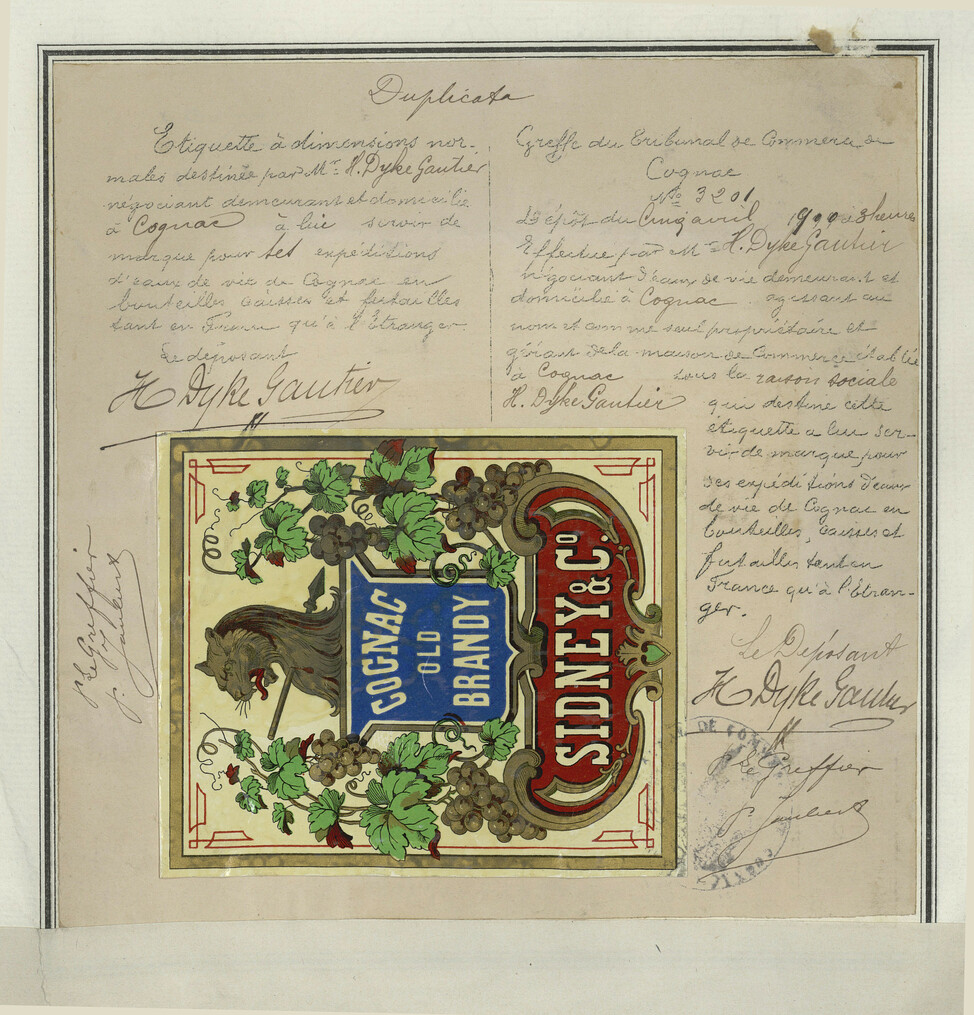 Duplicata
Etiquette à dimensions nor-
males destinée par Mr. H. Dyke Gautier
négociant demeurant et domicilié
à Cognac à lui servir de
marque pour ses expéditions
d'eaux de vie de Cognac en
bouteilles caisses et futailles
tant en France qu'à l'Étranger
Le déposant
H Dyke Gautier
Greffe du Tribunal de Commerce de
Cognac
No 3201
Dépôt du Cinq avril 19 à 3 heures
Effectué par M H. Dyke Gautier
négociant d'eaux de vie demeurant et
domicilié à Cognac agissant au
nom et comme seul propriétaire et
gérant de la maison de Commerce établie
à Cognac sous la raison sociale
H. Dyke Gautier qui destine cette
étiquette a lui ser-
vir de marque pour
ses expéditions d'eaux
de vie de Cognac en
bouteilles, caisses et
futailles tant en
France qu'à l'Étran-
ger.
Le Déposant
H Dyke Gautier
Le Greffier
P. Le Greffier
COGNAC
OLD
BRANDY
SIDNEY & Co.
DE COMM